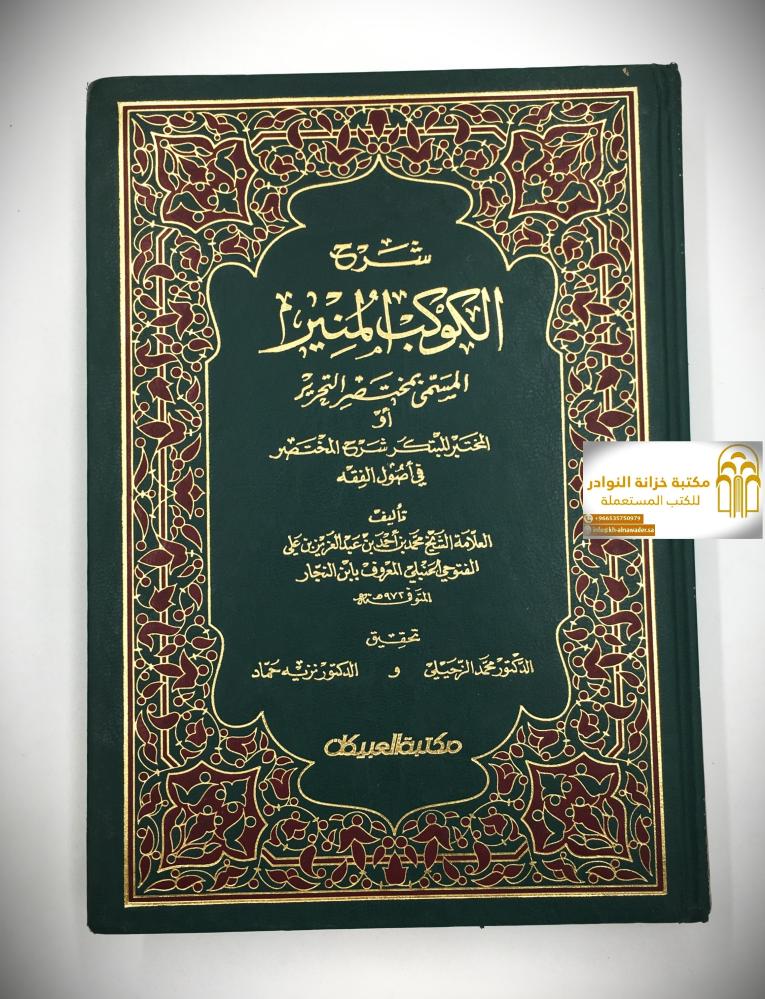 شرح
الكوكب المنير
المسمى بمختصر التحرير
أو
المختبر المبتكر شرح المختصر
في أصول الفقه
تأليف
العلامة الشيخ محمد بن أحمد بن عبد العزيز بن علي
الفتوحي الحنبلي المعروف بابن النجار
المتوفى ٩٧٢هـ
تحقيق
الدكتور محمد الزحيلي و الدكتور نزيه حماد
مكتبة العبيكان
مكتبة خزانة النوادر
للكتب المستعملة
+966535750979
info@kh-alnawader.sa